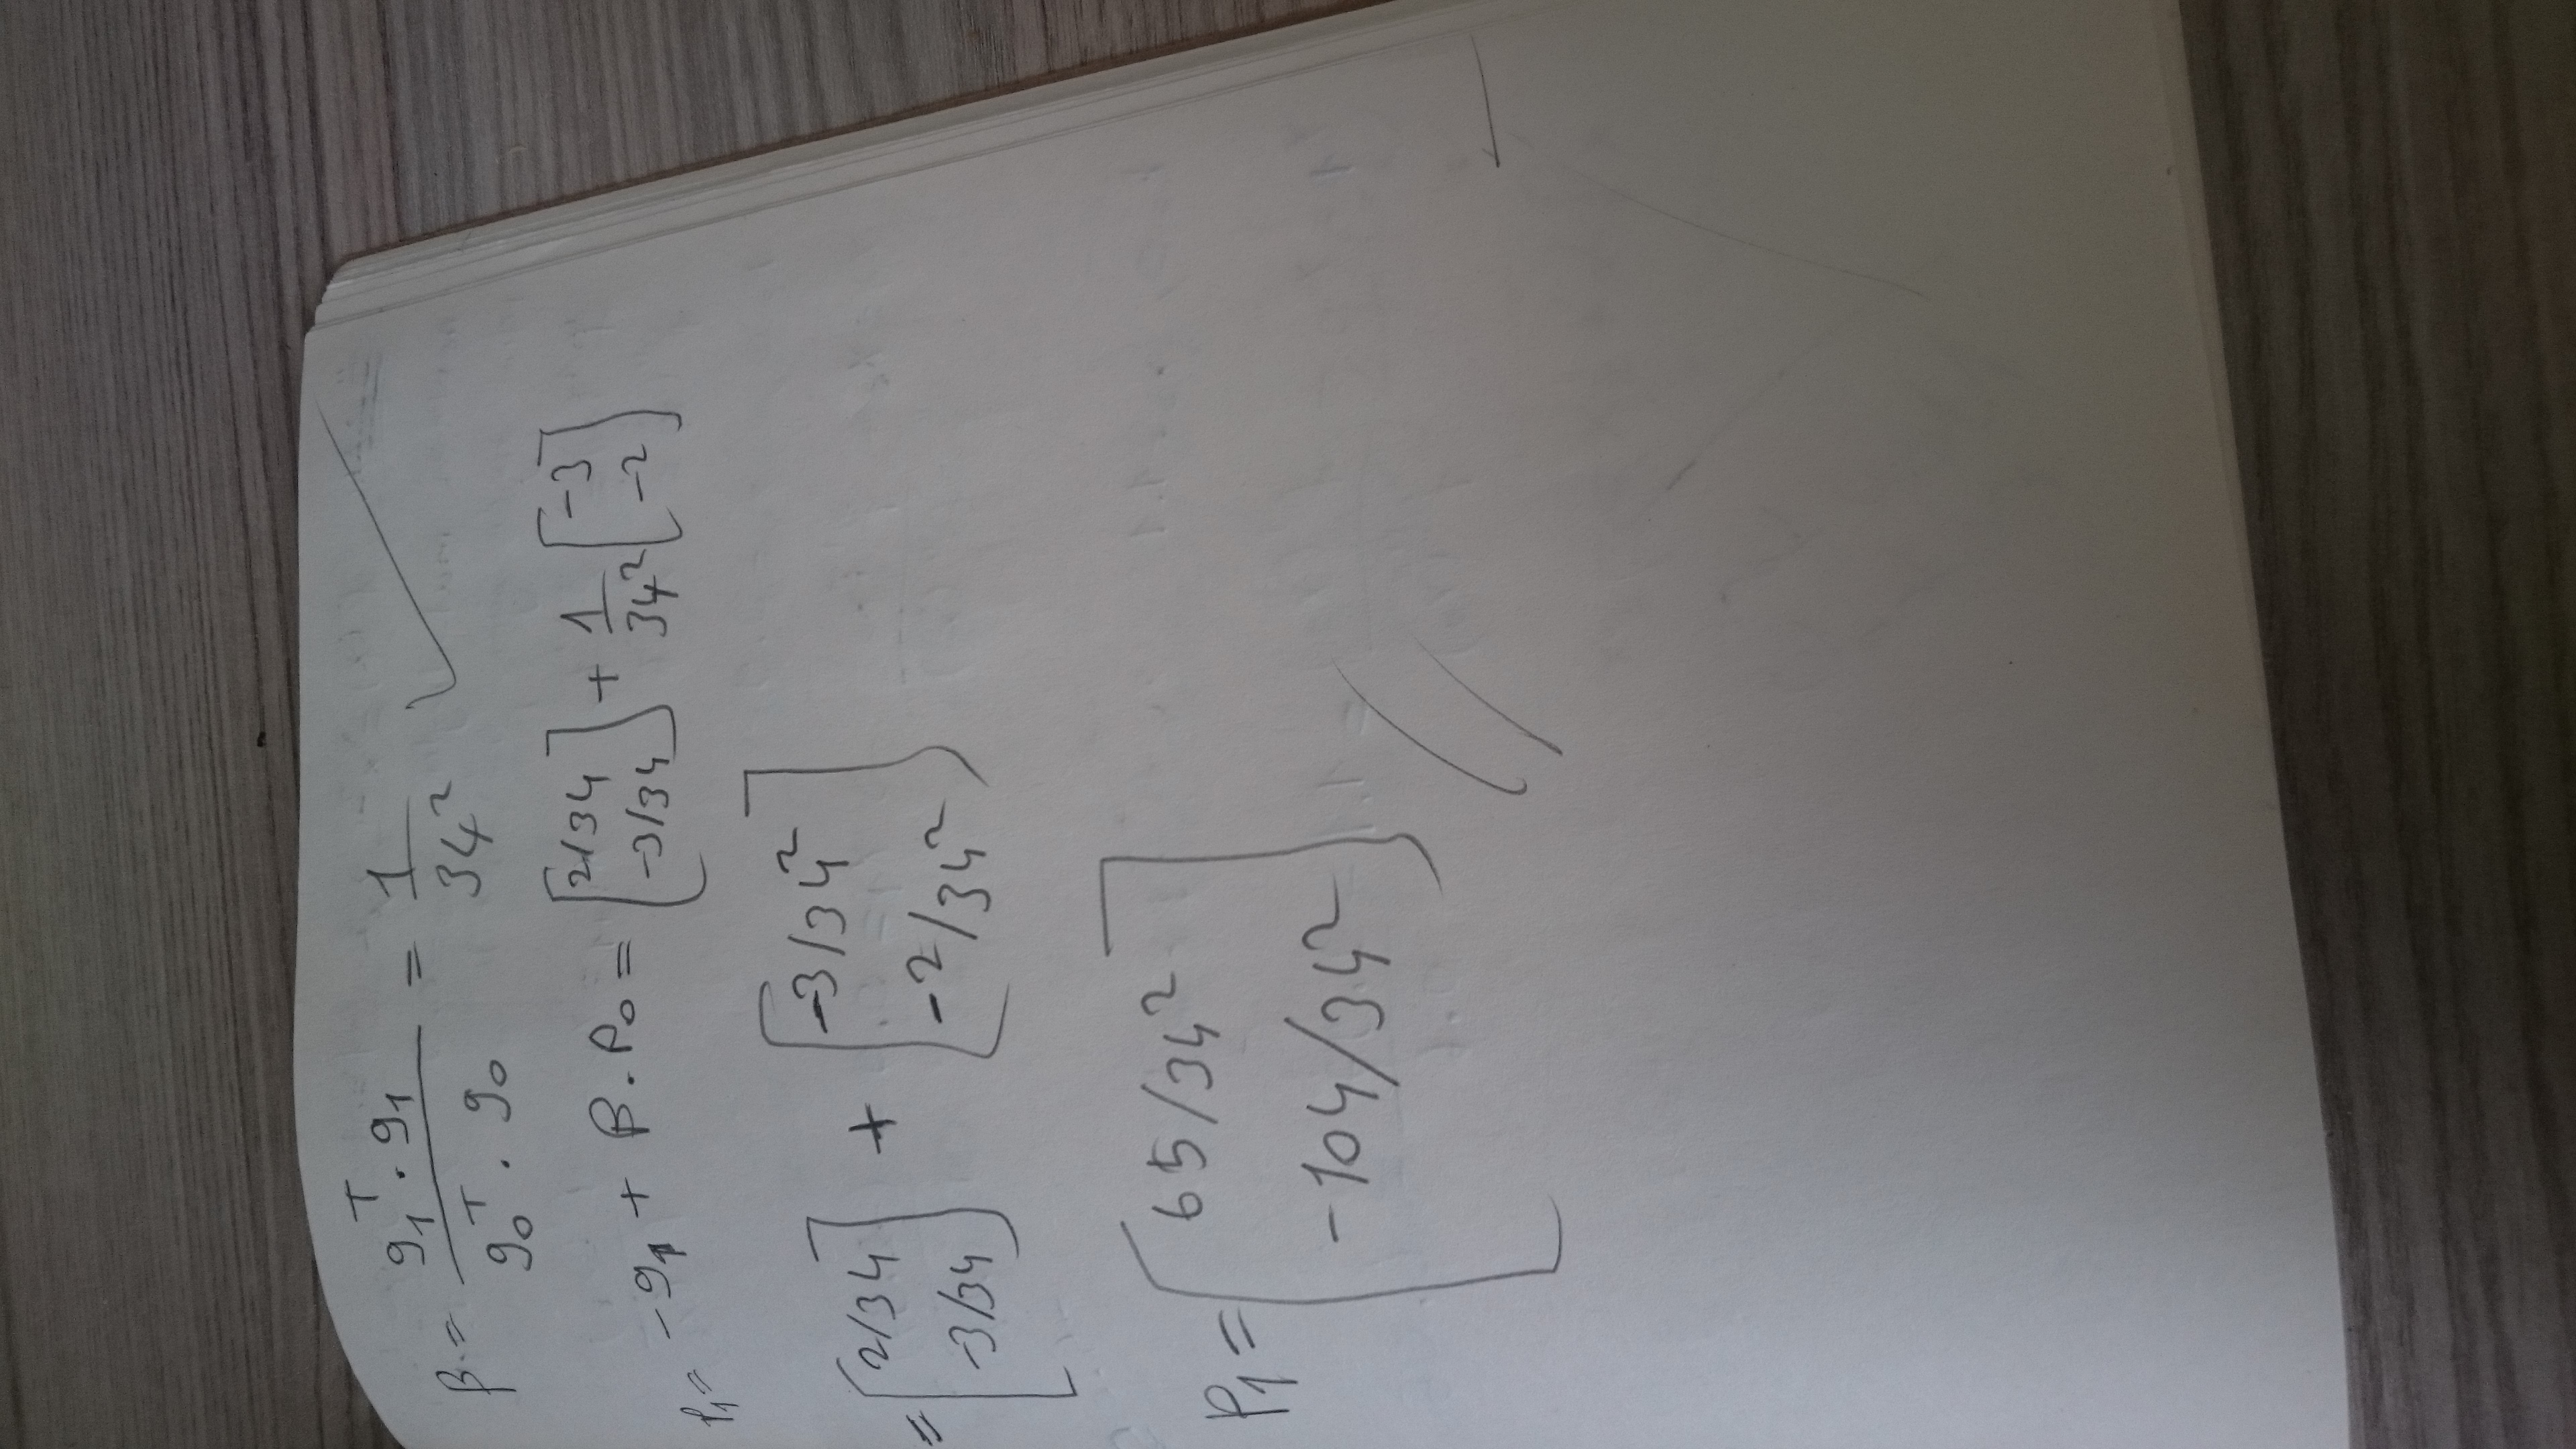 β = g₁ᵀ . g₁ / g₀ᵀ . g₀ = 1 / 34²
p₁ = -g₁ + β . p₀ = [2/34 -3/34] + 1/34² [-3 -2]
= [2/34 -3/34] + [-3/34² -2/34²]
p₁ = [65/34² -104/34²]